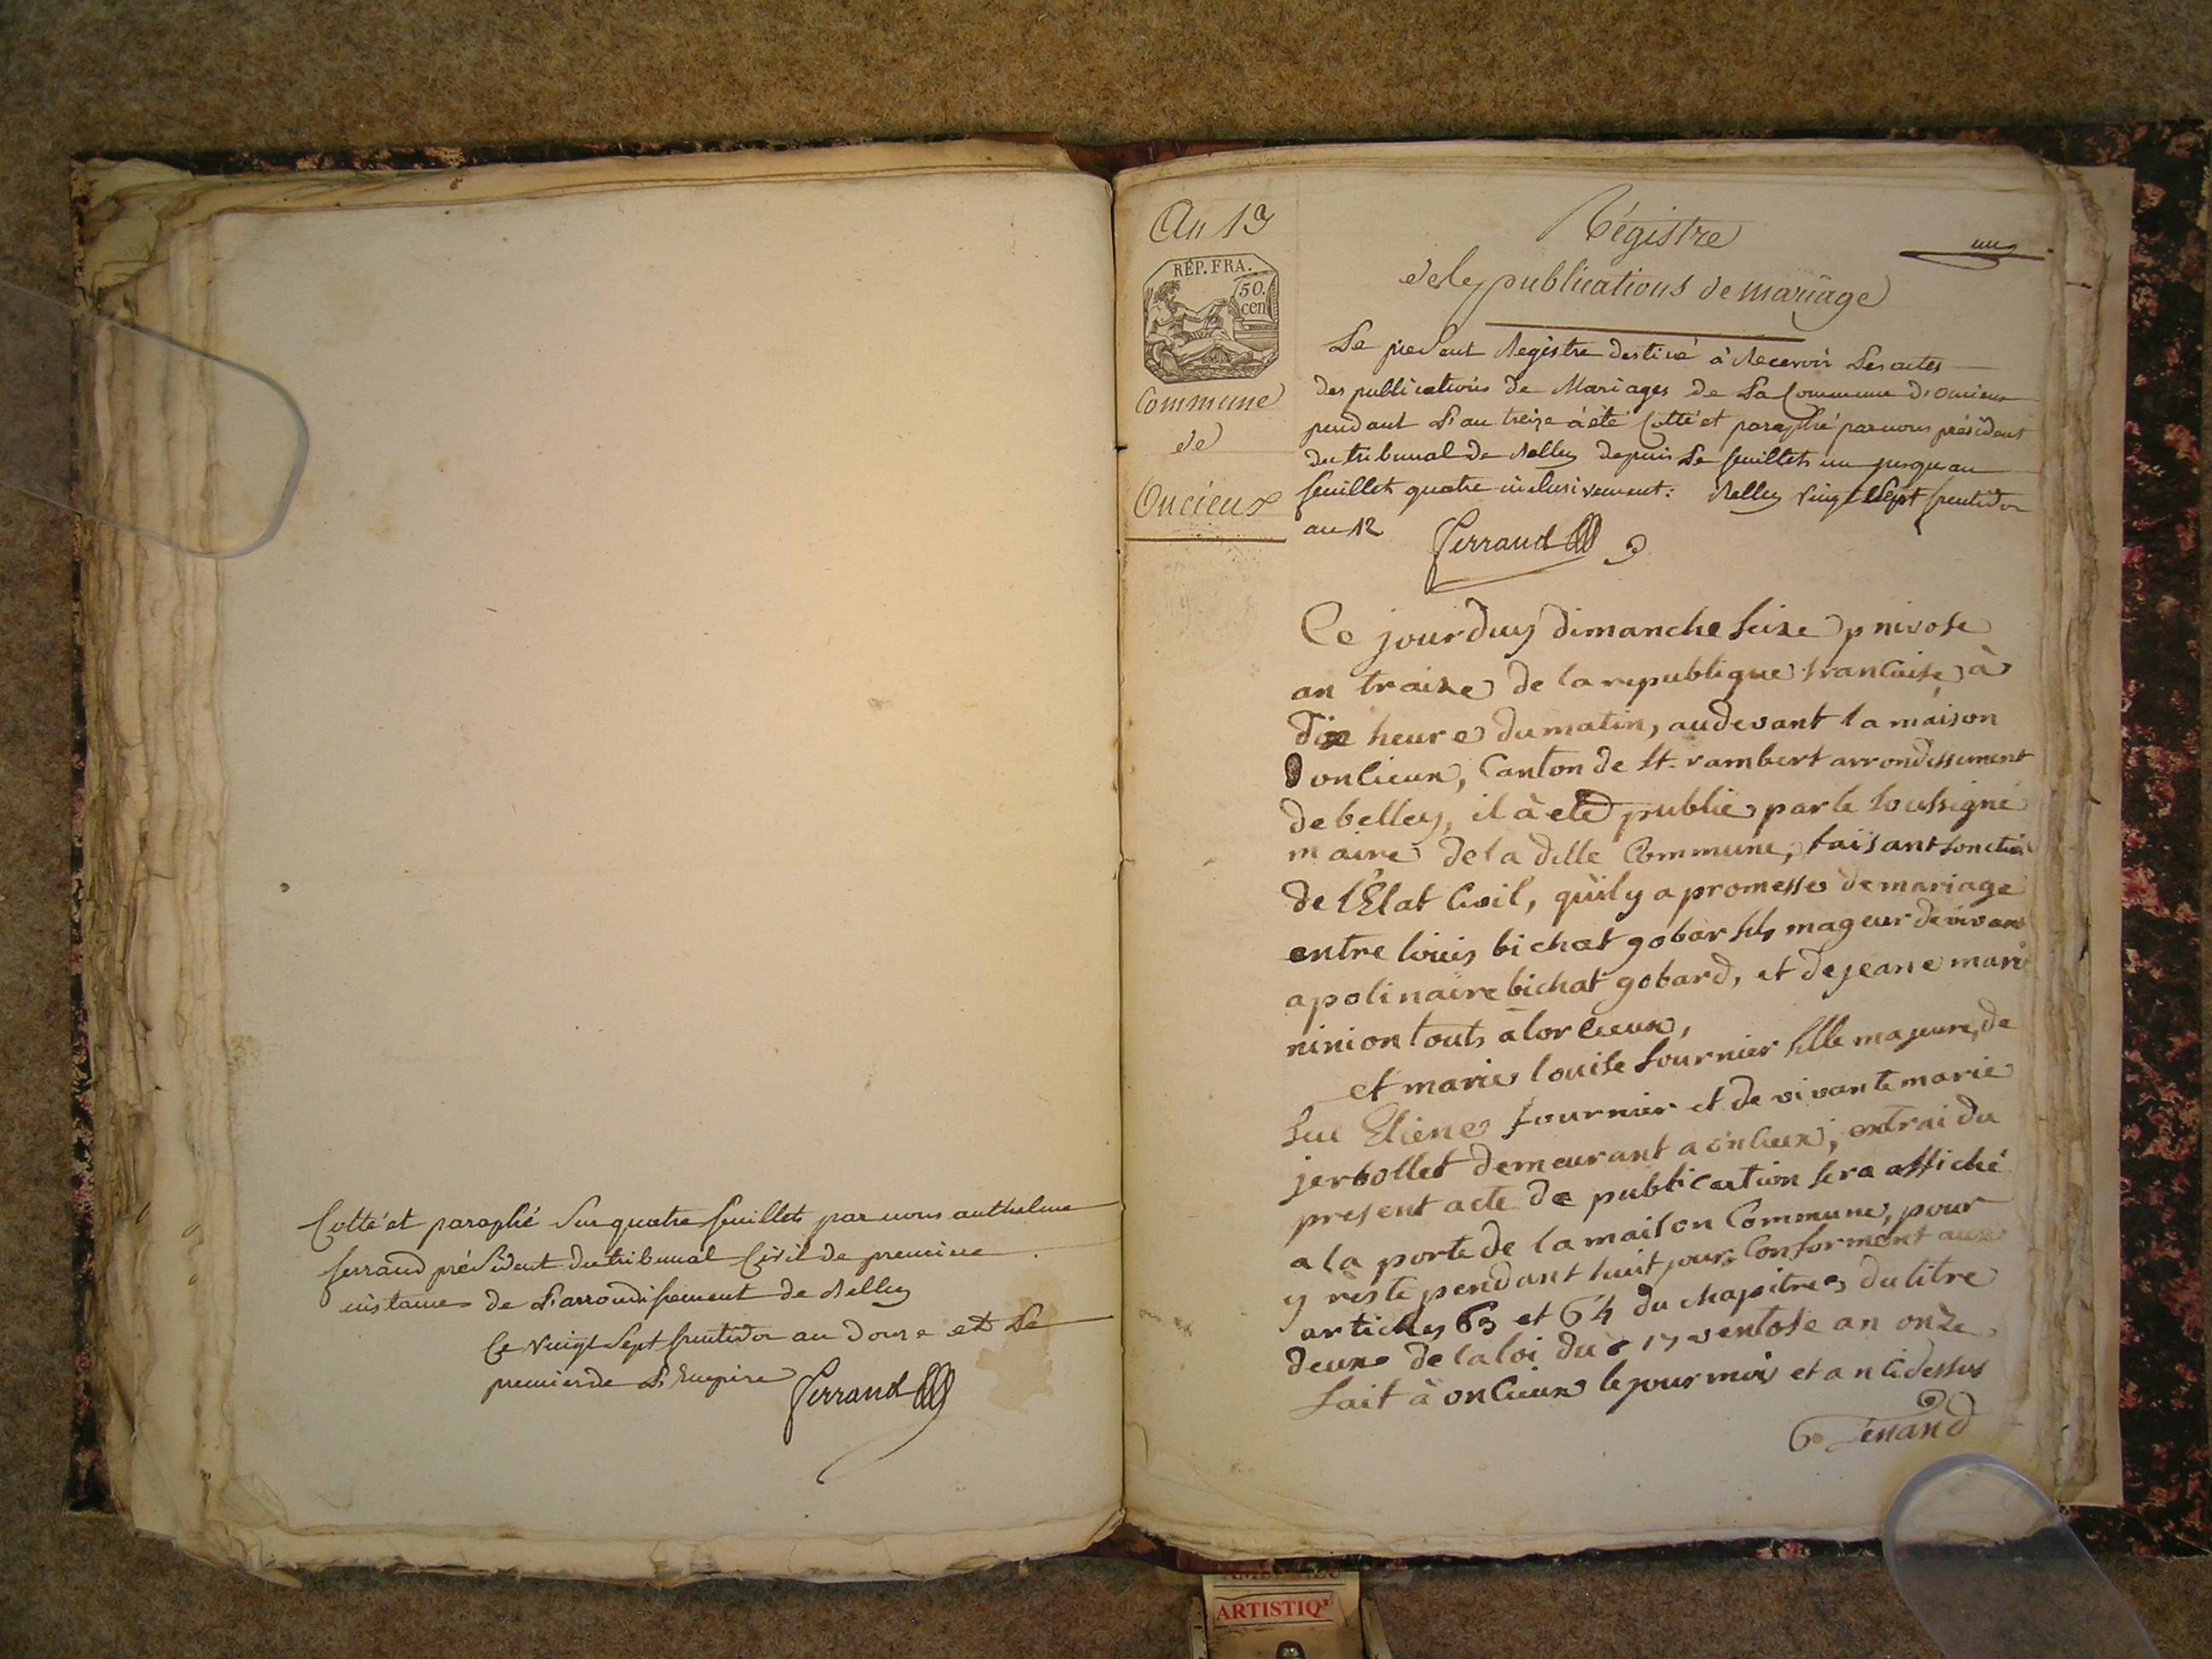 Cotté et paraphé Sur quatre feuillets par nous anthelme
ferrand présideut du tribunal Civil de premiere
instance de L'arrondissement de Belley
Ce vingt Sept fructidor an douze et Le
premier de L'Empire Ferrand
An 13
RÉP. FRA.
50.
cen
Commune
de
Oncieux
Régistre
un
des publications de mariage
Le présent Registre destiné à Recevoir Les actes
des publications de Mariages de La Commune d'oncieux
pendant L'an treize à été Cotté et paraphé par nous président
du tribunal de Belley depuis Le feuillet un jusqu'au
feuillet quatre inclusivement: Belley vingt Sept fructidor
an 12 Ferrand
Ce jourduy dimanche seize nivose
an traize de la republique francaise à
dix heure du matin, audevant la maison
donlieux, Canton de st. rambert arrondissement
de belley, il à eté publié par le soussigné
maire de la ditte Commune, faisant fonction
de l'Etat Civil, qu'il y a promesse de mariage
entre louis bichat gobar fils mageur de vivant
apolinaire bichat gobard, et de jeane marie
ninion touts à
et marie louise fournier fille majeure, de
feu Etiene fournier et de vivante marie
jerbollet demeurant a onlieux, extrai du
present acte de publication sera affiché
a la porte de la maison Commune, pour
y resté pendant huit jours Conforment aux
articles 63 et 64 du chapitre 3 du titre
deuxe de la loi du 17 ventose an onze
fait à onlieux le jour mois et an cidessus